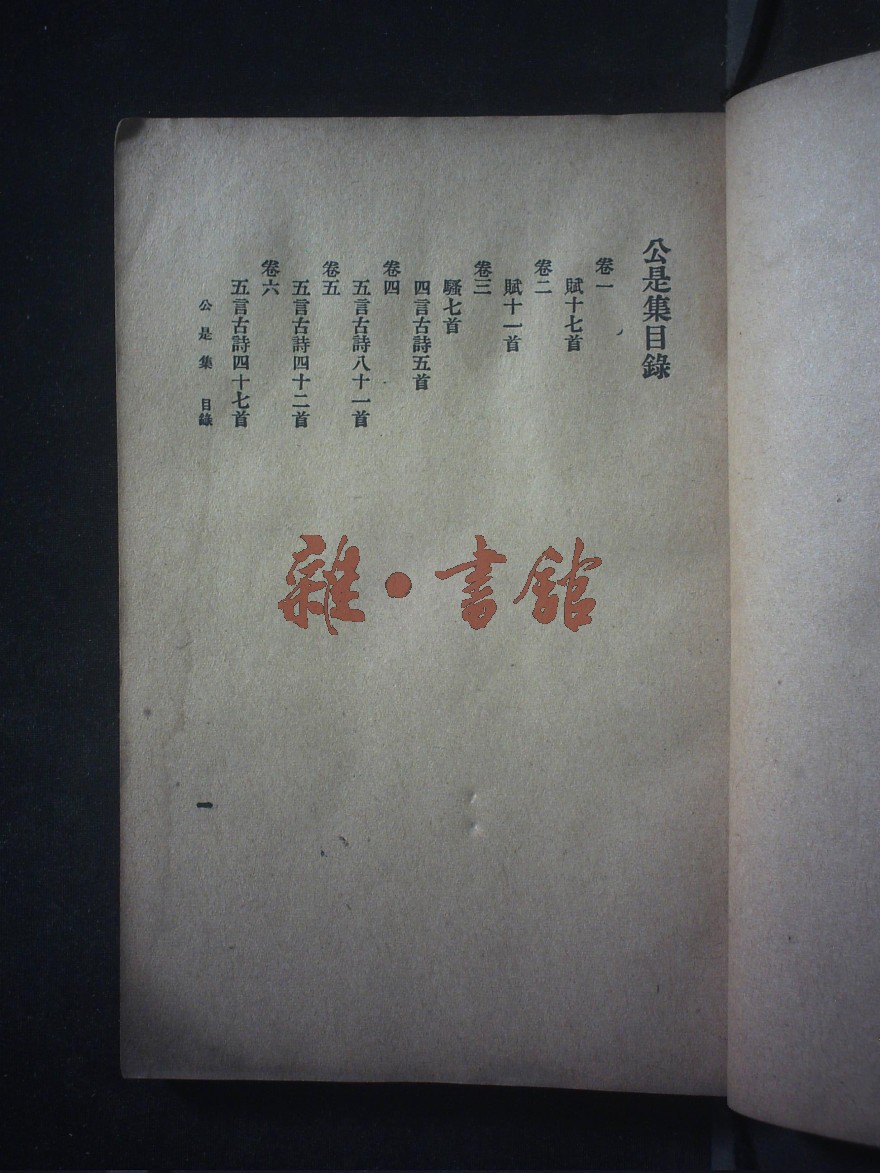 公是集目錄
卷一
賦十七首
卷二
賦十一首
卷三
騷七首
四言古詩五首
卷四
五言古詩八十一首
卷五
五言古詩四十二首
卷六
五言古詩四十七首
公是集 目錄
一
雜·書館